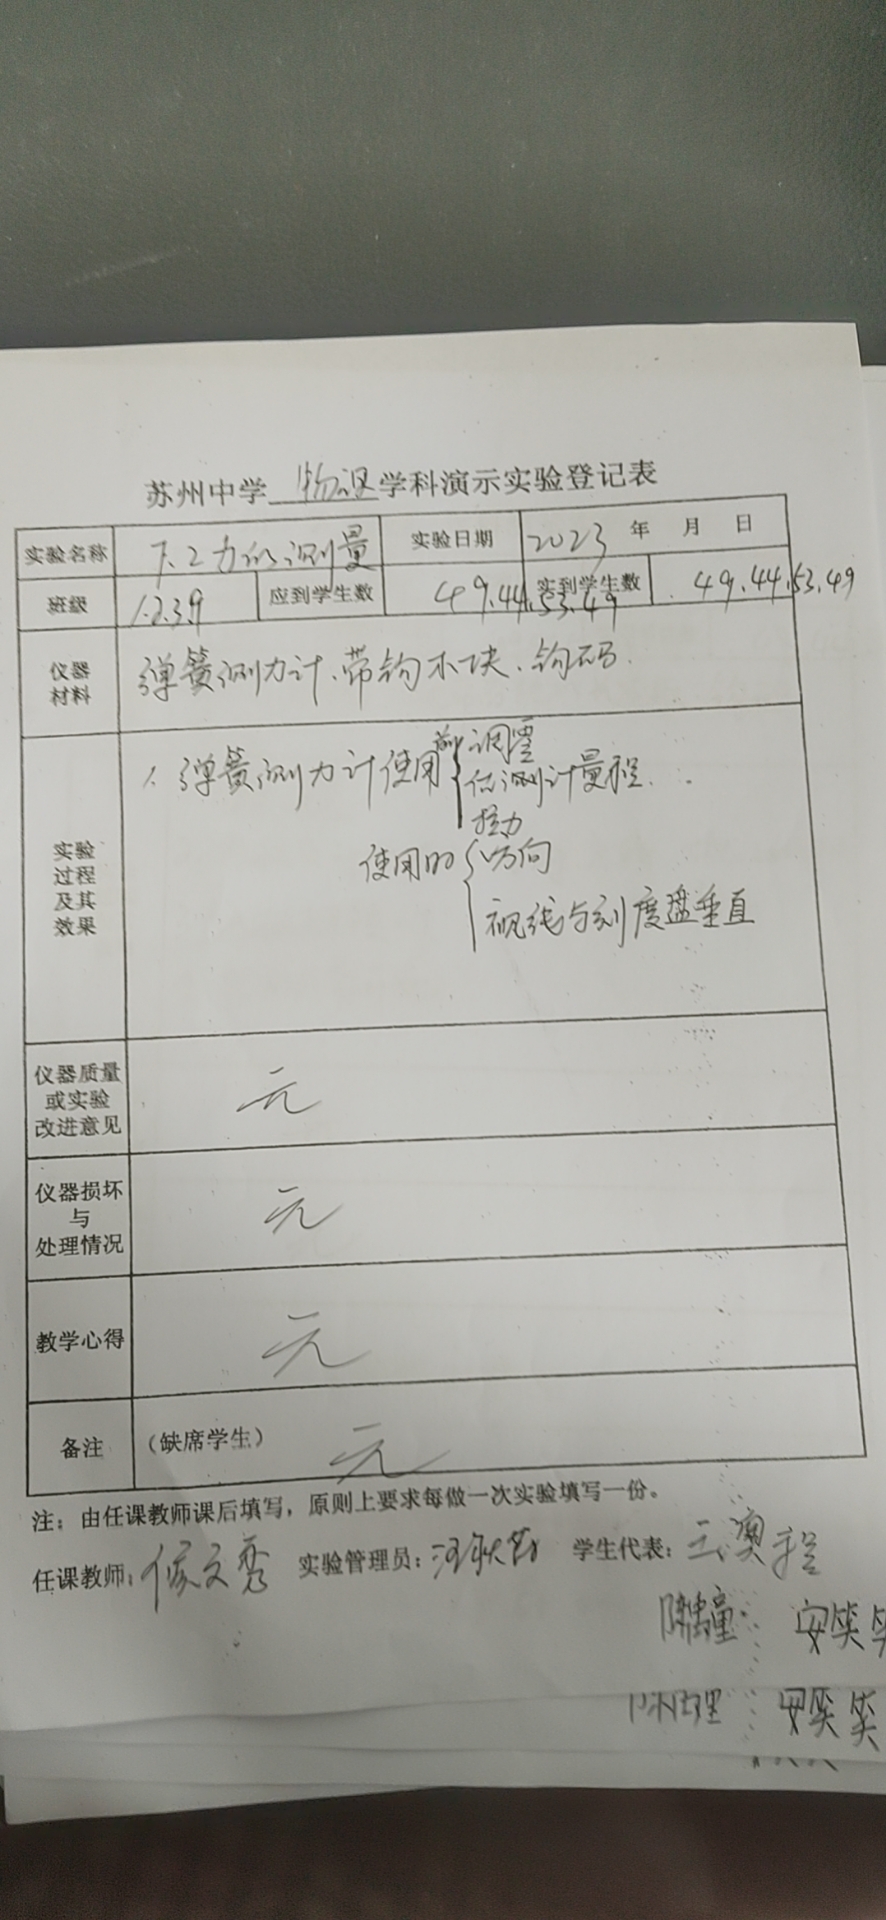 苏州中学 物理 学科演示实验登记表
实验名称 7.2力的测量 实验日期 2023 年 月 日
班级 1.2.3.9 应到学生数 49.44.53.49 实到学生数 49.44.53.49
仪器材料 弹簧测力计、带钩木块、钩码.
实验过程及其效果
1. 弹簧测力计使用前 调零
估测计量程.
拉力
使用时 方向
视线与刻度盘垂直
仪器质量或实验改进意见 无
仪器损坏与处理情况 无
教学心得 无
备注 (缺席学生) 无
注:由任课教师课后填写,原则上要求每做一次实验填写一份。
任课教师: 侯文秀 实验管理员: 学生代表:
安笑笑
安笑笑